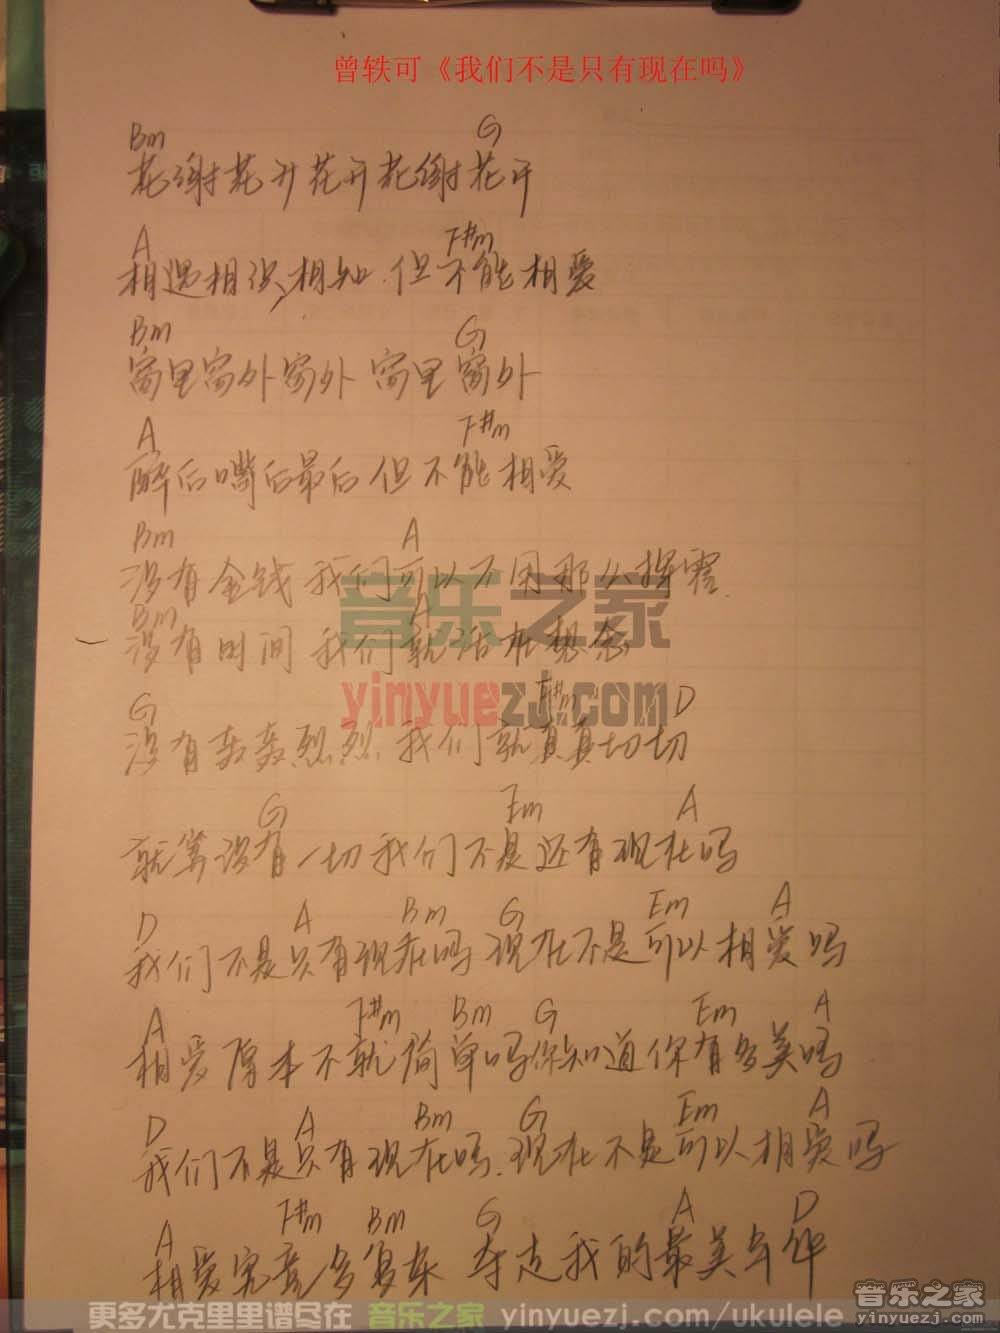 曾轶可《我们不是只有现在吗》
Bm G
花谢花开花开花谢花开
A F#m
相遇相识相知.但不能相爱
Bm G
窗里窗外窗外 窗里窗外
A F#m
醉后嘴后最后但不能相爱
Bm A
没有金钱 我们可以不用那么挥霍.
Bm A
没有时间 我们就活在想念
G F#m D
没有轰轰烈烈.我们就真真切切
G Em A
就算没有一切我们不是还有现在吗
D A Bm G Em A
我们不是只有现在吗 现在不是可以相爱吗
A F#m Bm G Em A
相爱原本不就简单吗你知道你有多美吗
D A Bm G Em A
我们不是只有现在吗.现在不是可以相爱吗
A F#m Bm G A D
相爱究竟多复杂 夺走我的最美年华
音乐之家
yinyuezj.com
更多尤克里里谱尽在 音乐之家 yinyuezj.com/ukulele
音乐之家
yinyuezj.com